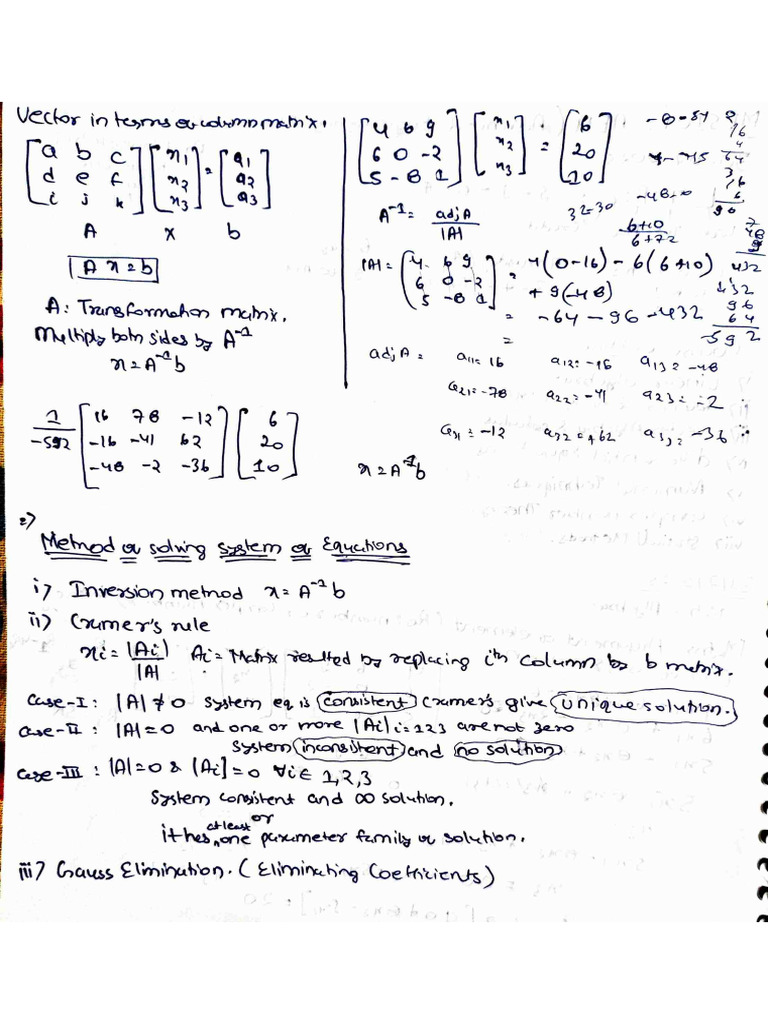 Vector in terms of column matrix.
[a b c
d e f
i j k] [x1
x2
x3] = [a1
a2
a3]
A x b
A x = b
A: Transformation matrix.
Multiply both sides by A⁻¹
x = A⁻¹b
[4 6 9
6 0 -2
5 -8 1] [x1
x2
x3] = [6
20
10]
A⁻¹ = adjA / |A|
32-30
-48+0
6+10
6+72
|A| = [4 6 9
6 0 -2
5 -8 1] = 4(0-16) - 6(6+10)
+ 9(-48)
= -64 - 96 - 432
=
16
4
64
16
6
96
48
9
432
432
96
64
-592
adjA = a11 = 16 a12 = -16 a13 = -48
a21 = -78 a22 = -41 a23 = -2
a31 = -12 a32 = +62 a33 = -36
1/-592 [16 78 -12
-16 -41 62
-48 -2 -36] [6
20
10]
x = A⁻¹b
2)
Method of solving system of Equations
i) Inversion method x = A⁻¹b
ii) Cramer's rule
xi = |Ai| / |A| Ai = Matrix resulted by replacing ith column by b matrix.
Case-I: |A| ≠ 0 System eq is consistent Cramer's give unique solution.
Case-II: |A| = 0 and one or more |Ai| i=123 are not zero
System inconsistent and no solution
Case-III: |A| = 0 & |Ai| = 0 ∀i∈ 1,2,3
System consistent and ∞ solution.
or
it has atleast one parameter family of solution.
iii) Gauss Elimination. (Eliminating Coefficients)